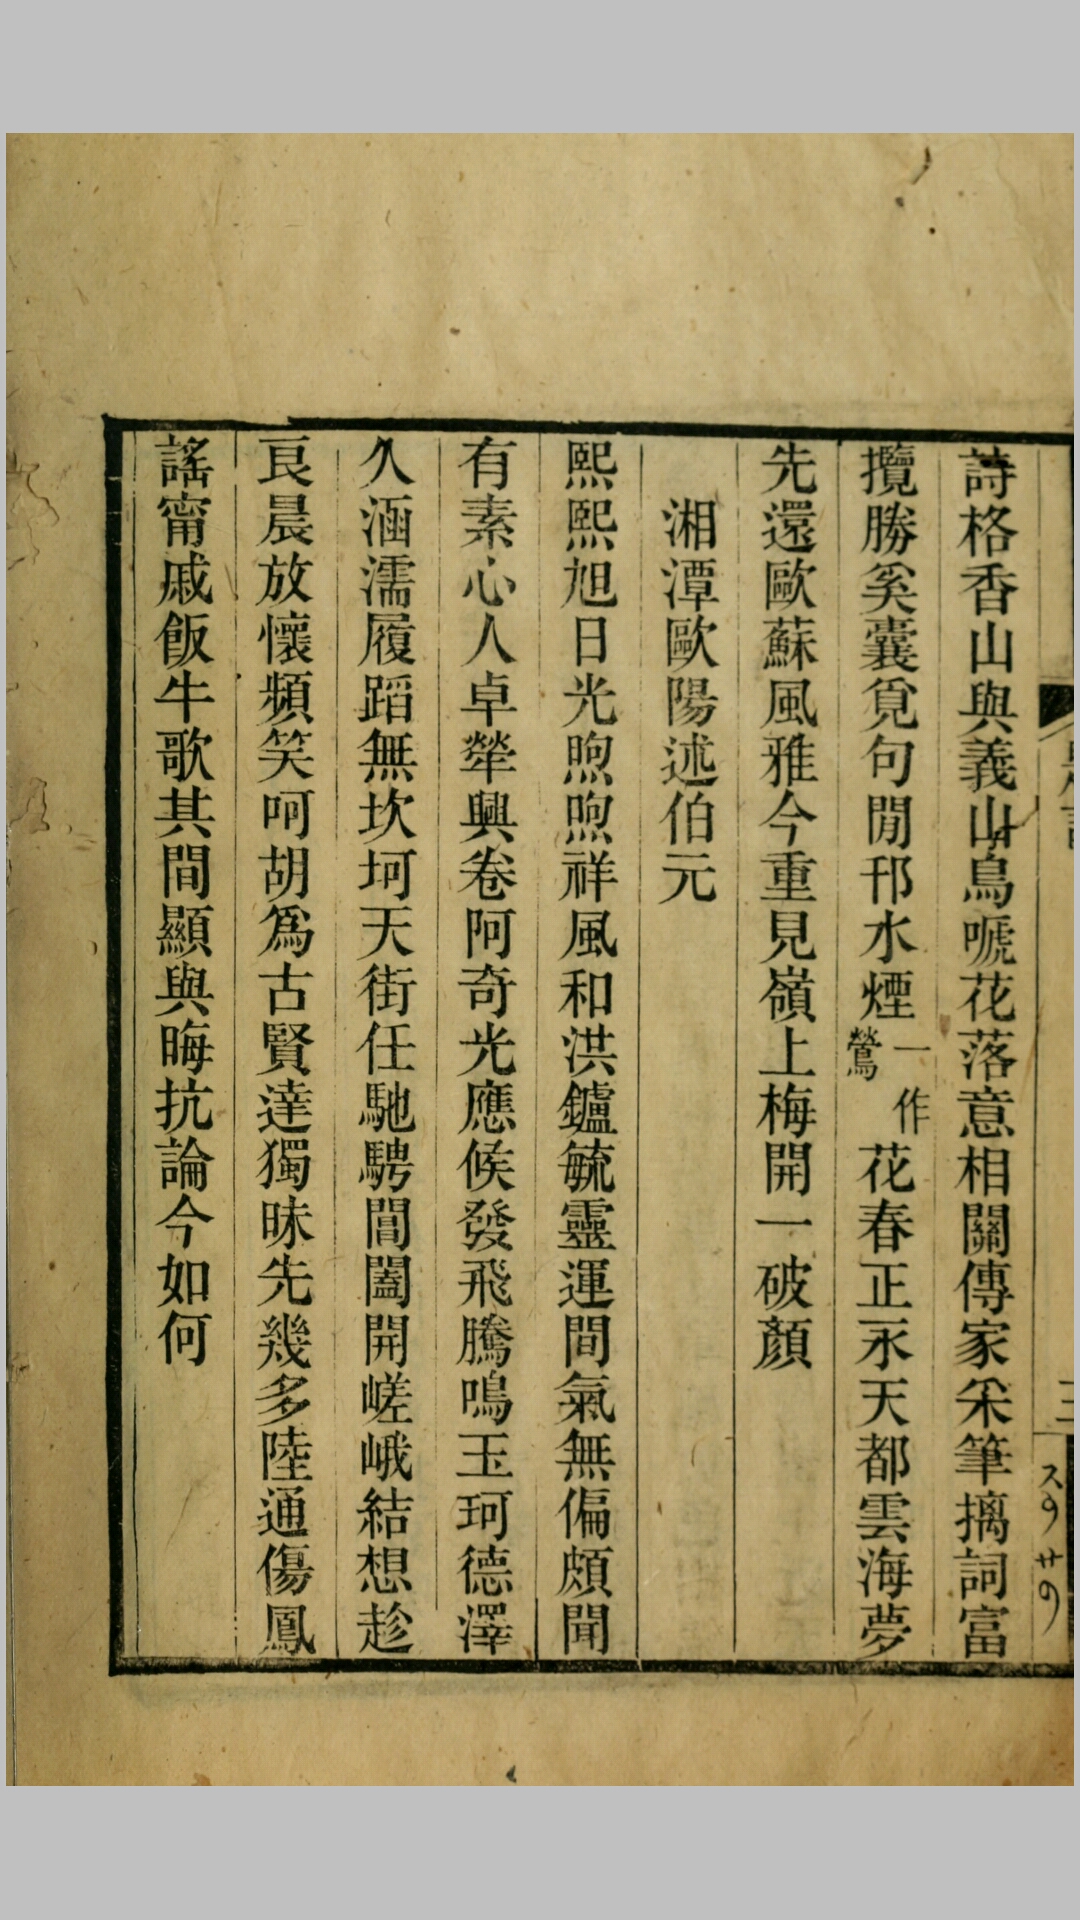 詩格香山與義山鳥嗁花落意相關傳家釆筆摛詞富
攬勝奚囊覓句閒邗水煙一作鶯花春正永天都雲海夢
先還歐蘇風雅今重見嶺上梅開一破顏
湘潭歐陽述伯元
熙熙旭日光煦煦祥風和洪鑪毓靈運間氣無偏頗聞
有素心人卓犖興卷阿奇光應候發飛騰鳴玉珂德澤
久涵濡履蹈無坎坷天街任馳騁閶闔開嵯峨結想趁
良晨放懷頻笑呵胡爲古賢達獨昧先幾多陸通傷鳳
謠甯戚飯牛歌其間顯與晦抗論今如何